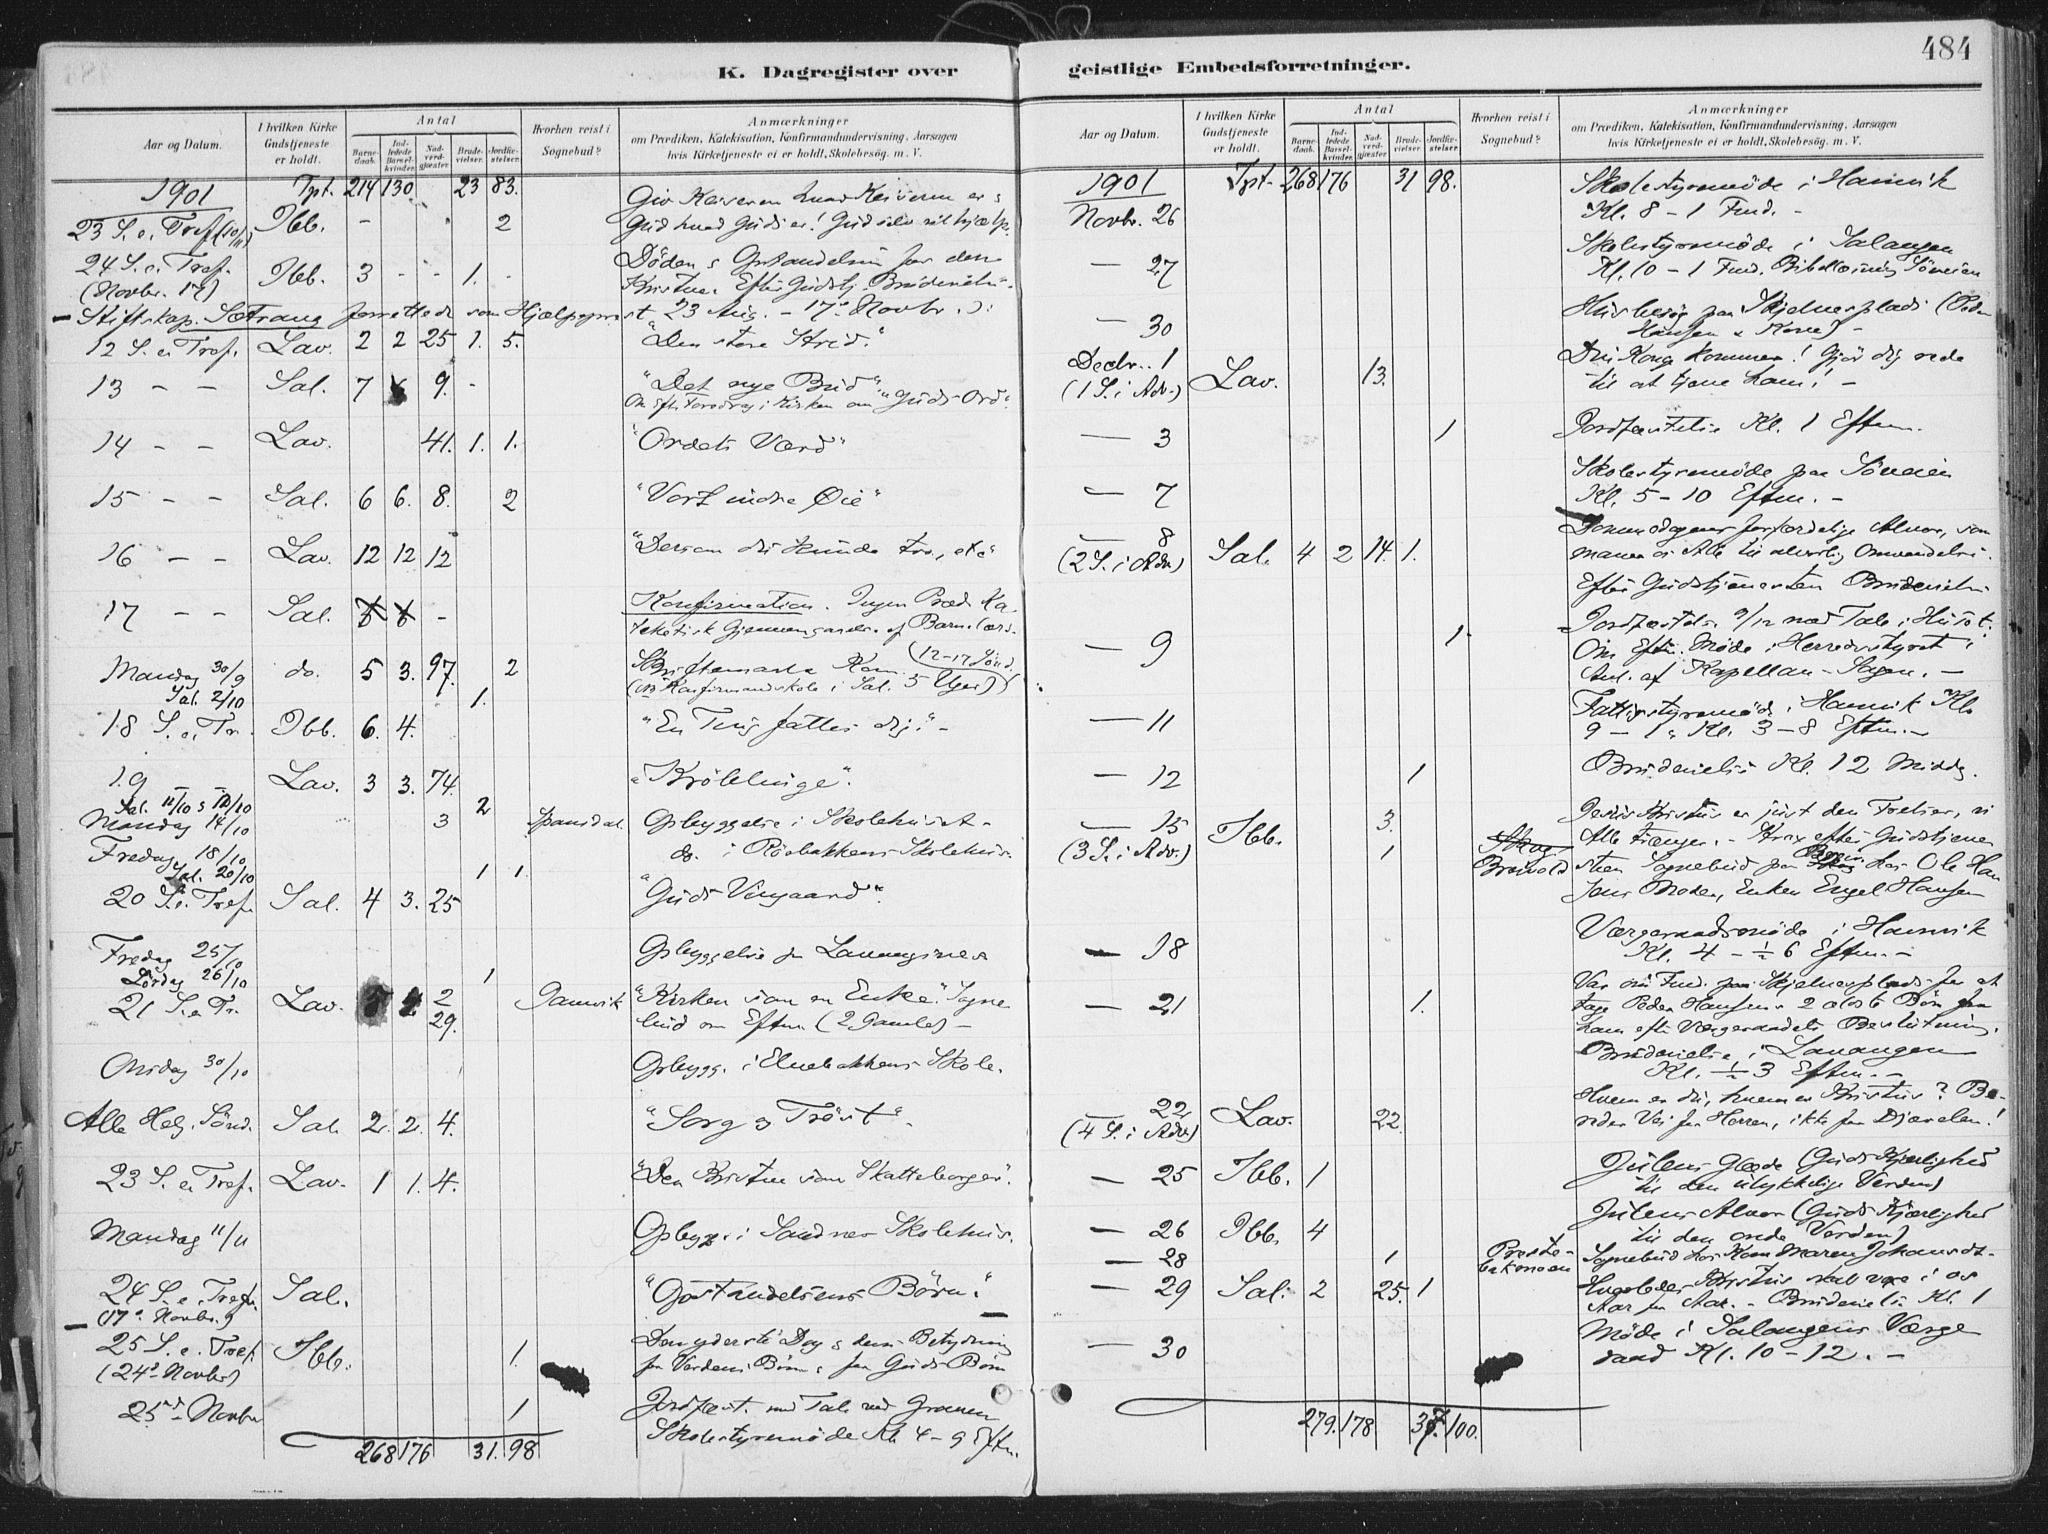 484
K. Dagregister over
geistlige Embedsforretninger.
Aar og Datum.
I hvilken Kirke Gudstjeneste er holdt.
Antal
Barnedaab.
Indledede Barselkvinder.
Nadverdgjæster.
Brudevielser.
Jordfæstelser.
Hvorhen reist i Sognebud?
Anmærkninger
om Prædiken, Katekisation, Konfirmandundervisning, Aarsagen
hvis Kirketjeneste ei er holdt, Skolebesøg. m. V.
1901 Tpt. 214 130 23 83.
23 S. e. Tref. (10/11) Ibb. - 2 Gud hvad Guds er! Gud
24 S. e. Tref. (Novbr. 17) Ibb. 3 - - 1. - Døden
Stiftskap. Sætrang forrettede som Hjælpeprest 23 Aug. - 17de Novbr.):
12 S. e. Tref. Lav. 2 2 25 1. 5. "Den store Strid."
13 - - Sal. 7 9. - "Det nye Bud". Foredrag i Kirken om "Guds Ord".
14 - - Lav. 41. 1. 1. "Ordets Værd"
15 - - Sal. 6 6. 8. 2 "Vort indre Øie"
16 - - Lav. 12 12 12 "Dersom du kunde tro, etc"
17 - - Sal. - Konfirmation. Ingen Præd. Ka
teketisk Gjennemgaaelse af Barnelærd.
Mandag 30/9 do. 5 3. 97. 2 Skriftemaal (12-17 Sønd.
Sal. 2/10 1. Konfirmandskole i Sal. 5 Uger)
18 S. e. Tr. Ibb. 6. 4. "En Ting fattes dig." -
19 - - Lav. 3 3. 74. "Krøblinge".
Sal. 11/10 & 12/10 2
Mandag 14/10 3 Spansdal Opbyggelse i Skolehuset -
Fredag 18/10 do. i Røsbakkens Skolehus.
Sal. 20/10 1 1.
20 S. e. Tref. Sal. 4 3. 25 "Guds Vingaard".
Fredag 25/10 Opbyggelse
Lørdag 26/10 1
21 S. e. Tr. Lav. 2 29. "Kirken som en Enke". Sogne
bud om Eftm. (2 Gamle) -
Onsdag 30/10 Opbygg. i Elvebakkens Skole.
Alle Helg. Sönd. Sal. 2. 2. 4. "Sorg & Trøst".
23 S. e. Tref. Lav. 1 1. 4. "Den Kristne som Skatteborger".
Mandag 11/11 Opbygg. i Sandnes Skolehus.
24 S. e. Tref. (17de Novbr.) Sal. "Opstandelsens Børn."
25 S. e. Tref. (24de Novbr) Ibb. 1. Den yderste Dag & dens Betydning
for Verdens Børn & for Guds Børn
25de Novbr 1 Jordfæst. med Tale ved Graven
Skolestyremøde Kl. 4-9 Eftm.
268 176 31. 98
Aar og Datum.
I hvilken Kirke Gudstjeneste er holdt.
Antal
Barnedaab.
Indledede Barselkvinder.
Nadverdgjæster.
Brudevielser.
Jordfæstelser.
Hvorhen reist i Sognebud?
Anmærkninger
om Prædiken, Katekisation, Konfirmandundervisning, Aarsagen
hvis Kirketjeneste ei er holdt, Skolebesøg. m. V.
1901 Tpt. 268 176 31 98.
Novbr. 26 Skolestyremøde i Hamvik
Kl. 8 - 1 Fmd. -
— 27 Skolestyremøde i Salangen
Kl. 10 - 1 Fmd. Bibellæsning Søveien
— 30 Husbesøg paa (Peder
Hansen & Kone) -
Decbr. 1 (1 S. i Adv.) Lav. 13. Din Konge kommer! Gjør dig rede
til at tjene ham! -
— 3 1 Jordfæstelse Kl. 1 Eftm.
— 7 Skolestyremøde paa Søveien
Kl. 5 - 10 Eftm. -
— 8 (2 S. i Adv.) Sal. 4 2 14. 1. Dommedagens forfærdelige Alvor, som
maner os Alle til alvorlig Omvendelse.
Efter Gudstjenesten Brudevielse
— 9 1 Jordfæstelse 9/12 med Tale i Huset.
Om Eftm. Møde i Herredsstyret i
Anl. af Kapellan-Sagen. -
— 11 Fattigstyremøde i Hamvik Kl.
9 - 1 & Kl. 3 - 8 Eftm. -
— 12 1 Brudevielse Kl. 12 Middg.
— 15 (3 S. i Adv.) Ibb. 3. Jesus Kristus er just den Frelser, vi
Alle trænger. - Strax efter Gudstjene
1 sten Sognebud paa hos Ole Han
sens Moder, Enken Engel Hansen
— 18 Værgeraadsmøde i Hamvik
Kl. 4 - ½6 Eftm. -
— 21 1. Var om Fmd. paa for at
tage Peder Hansens 2 ældste Børn fra
ham efter Værgeraadets Beslutning.
Brudevielse i Lavangen
Kl. ½3 Eftm. -
— 22 (4 S. i Adv.) Lav. 22. Hvem er du, hvem er Kristus? Be-
reder Vei for Herren, ikke for Djævelen!
— 25 Ibb. 1 Julens Glæde (Guds Kjærlighed
til den ulykkelige Verden)
— 26 Ibb. 4 Julens Alvor (Guds Kjærlighed
til den onde Verden)
— 28 1 Prestebakmoen Sognebud hos Kone Maren Johansdt.
— 29 Sal. 2 25. 1 Kristus skal være i os
Aar for Aar. - Brudevielse Kl. 1
— 30 Møde i Salangens Værge
raad Kl. 10 - 12. -
279. 178 100.